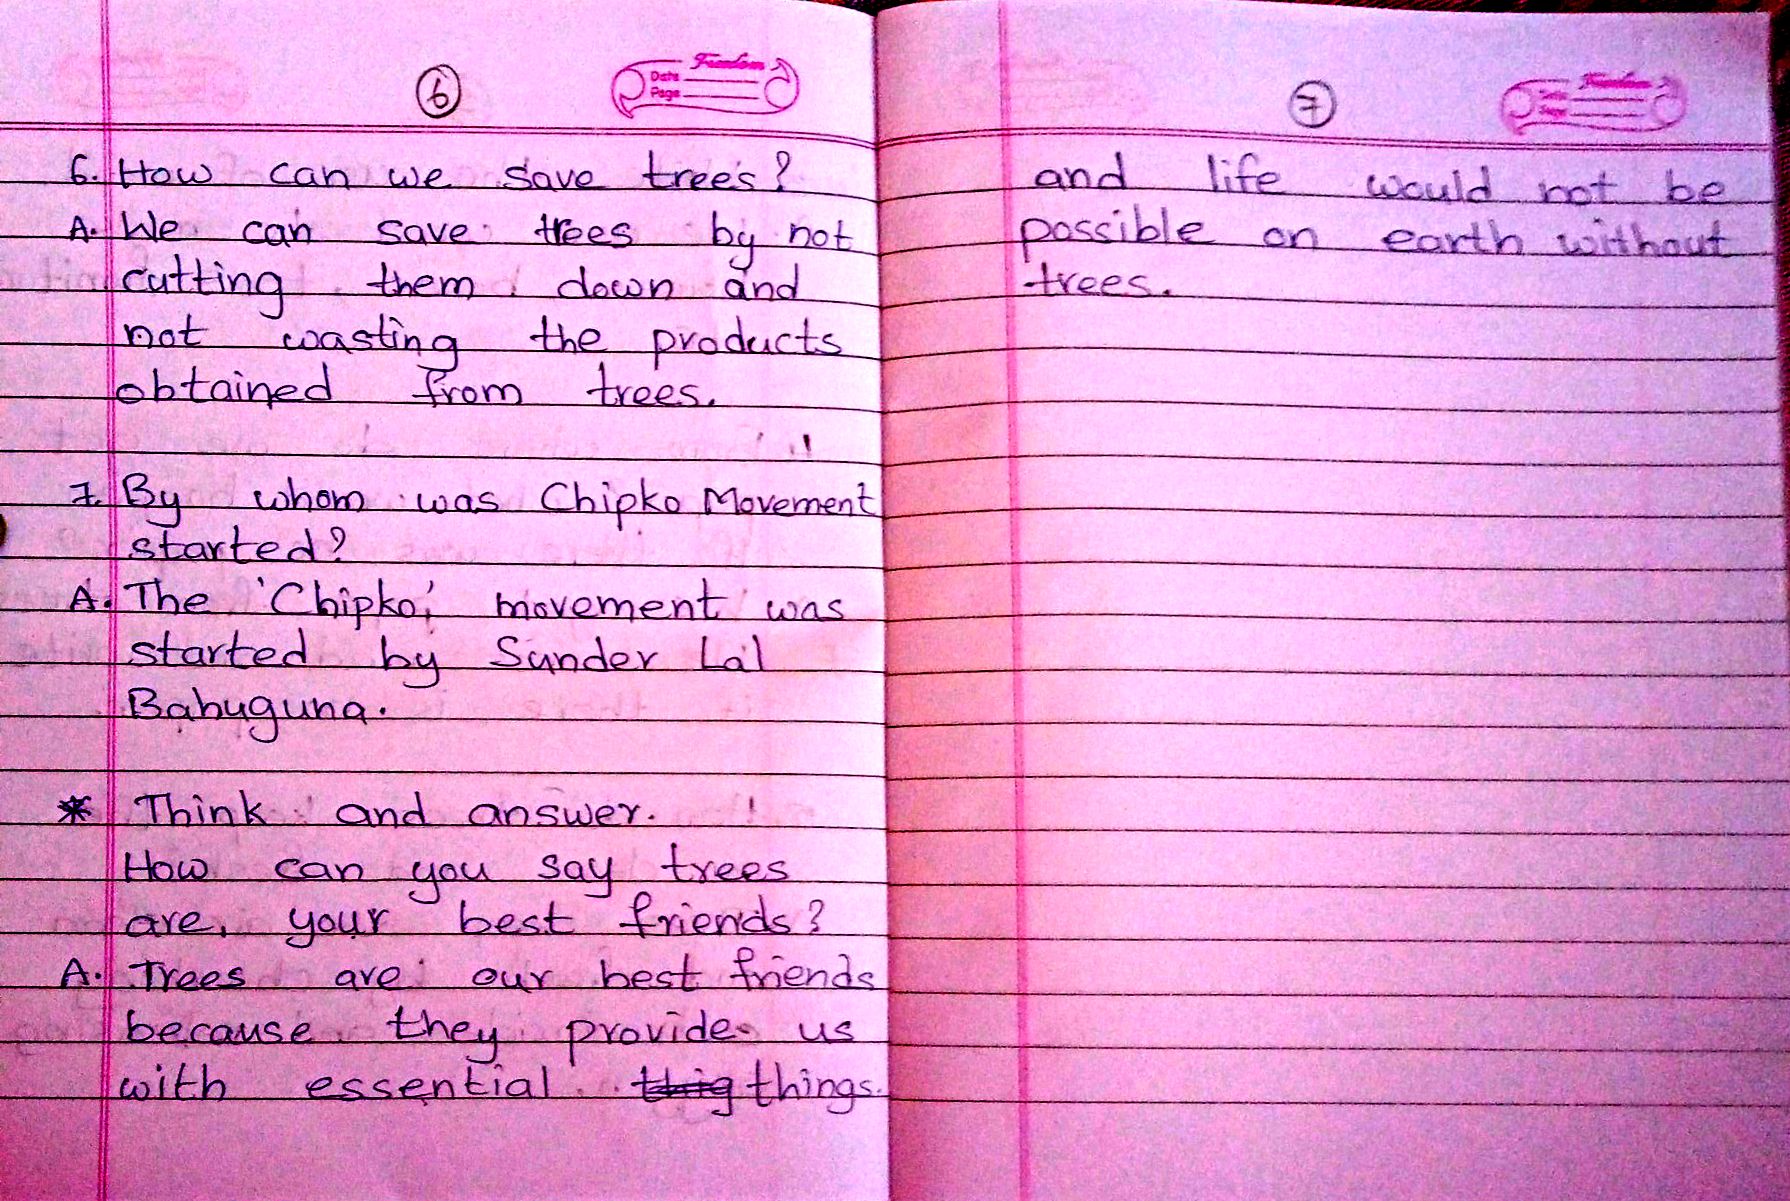 6
Freedom
Date
Page
6. How can we save trees?
A. We can save trees by not
cutting them down and
not wasting the products
obtained from trees.
7. By whom was Chipko Movement
started?
A. The 'Chipko' movement was
started by Sunder Lal
Bahuguna.
* Think and answer.
How can you say trees
are your best friends?
A. Trees are our best friends
because they provide us
with essential thig things
7
Freedom
and life would not be
possible on earth without
trees.